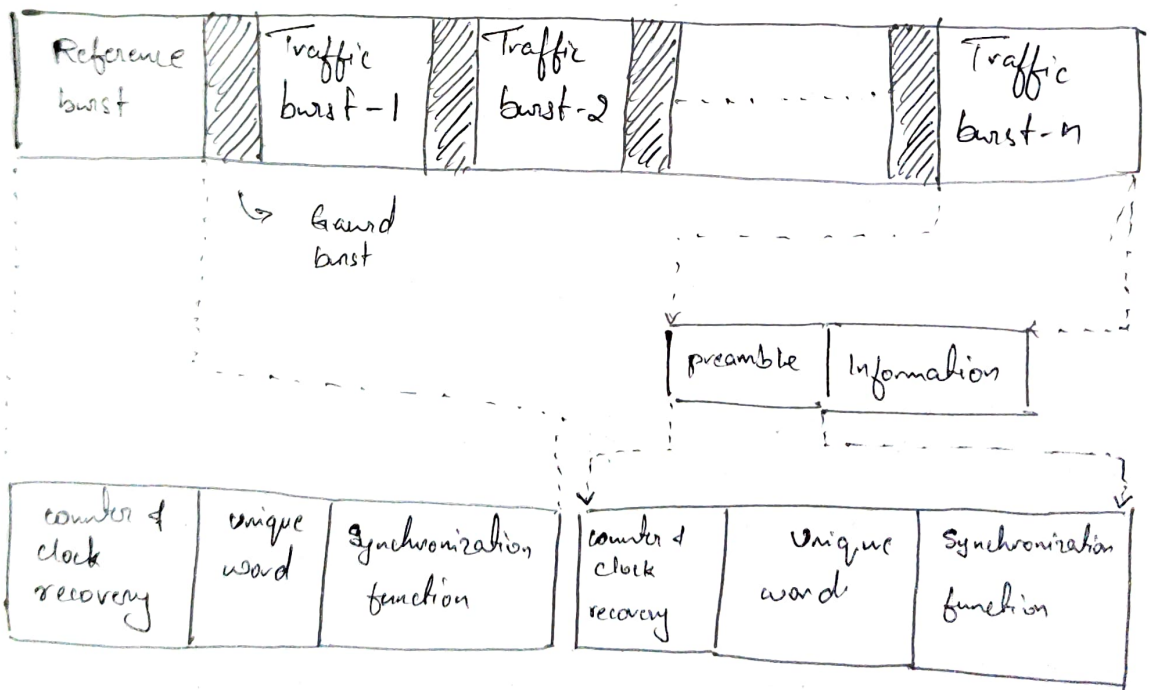 Reference
burst
Traffic
burst-1
Traffic
burst-2
Traffic
burst-n
Gaurd
burst
preamble
Information
counter &
clock
recovery
unique
word
Synchronization
function
counter &
clock
recovery
Unique
word
Synchronization
function